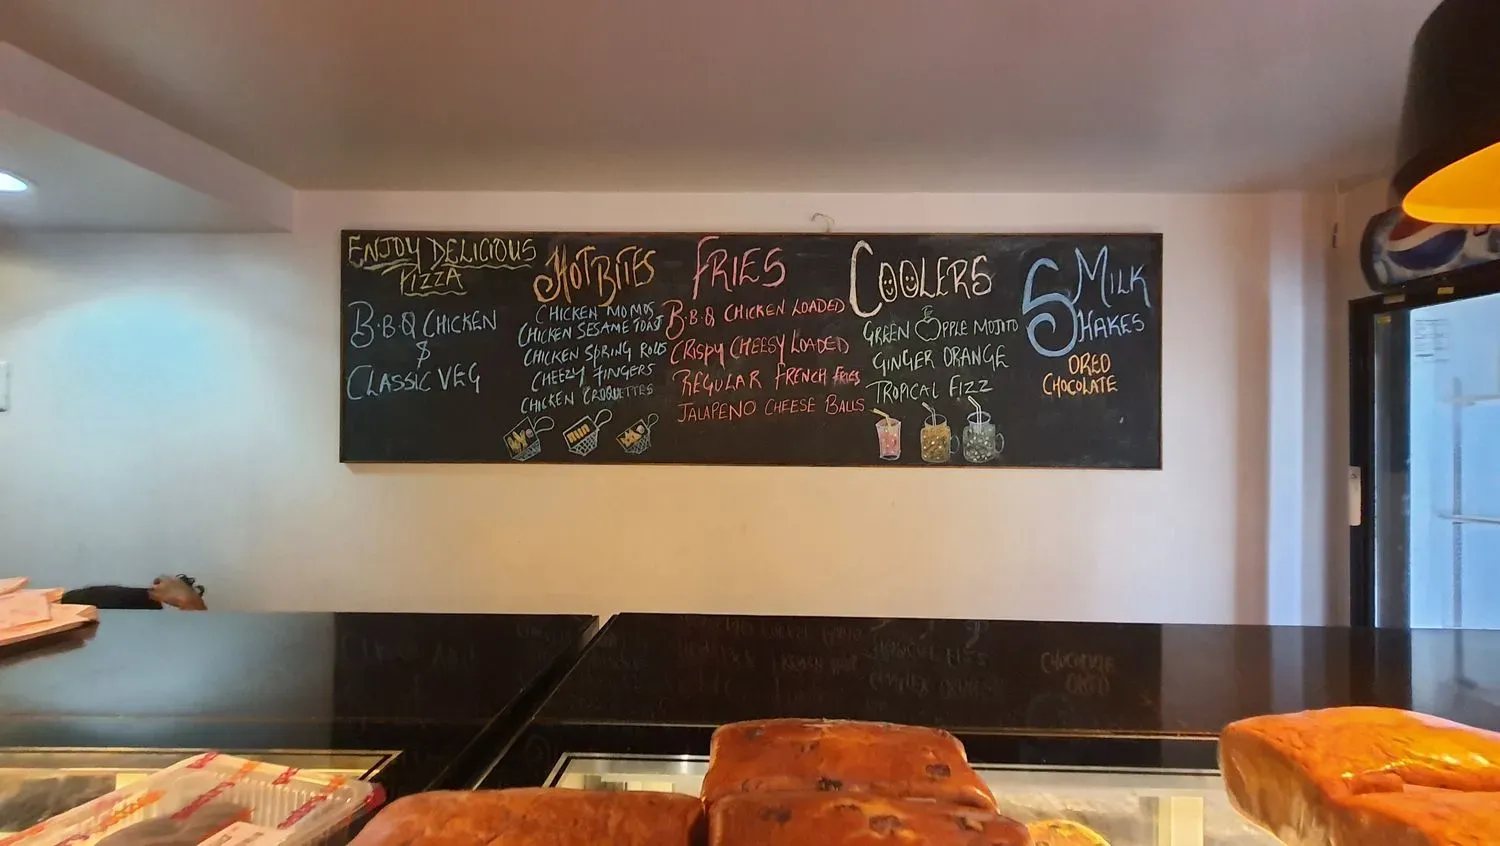 ENJOY DELICIOUS
PIZZA
B.B.Q CHICKEN
&
CLASSIC VEG
HOT BITES
CHICKEN MOMOS
CHICKEN SESAME TOAST
CHICKEN SPRING ROLLS
CHEEZY FINGERS
CHICKEN CROQUETTES
FRIES
B.B.Q CHICKEN LOADED
CRISPY CHEESY LOADED
REGULAR FRENCH FRIES
JALAPENO CHEESE BALLS
COOLERS
GREEN APPLE MOJITO
GINGER ORANGE
TROPICAL FIZZ
MILK
SHAKES
OREO
CHOCOLATE